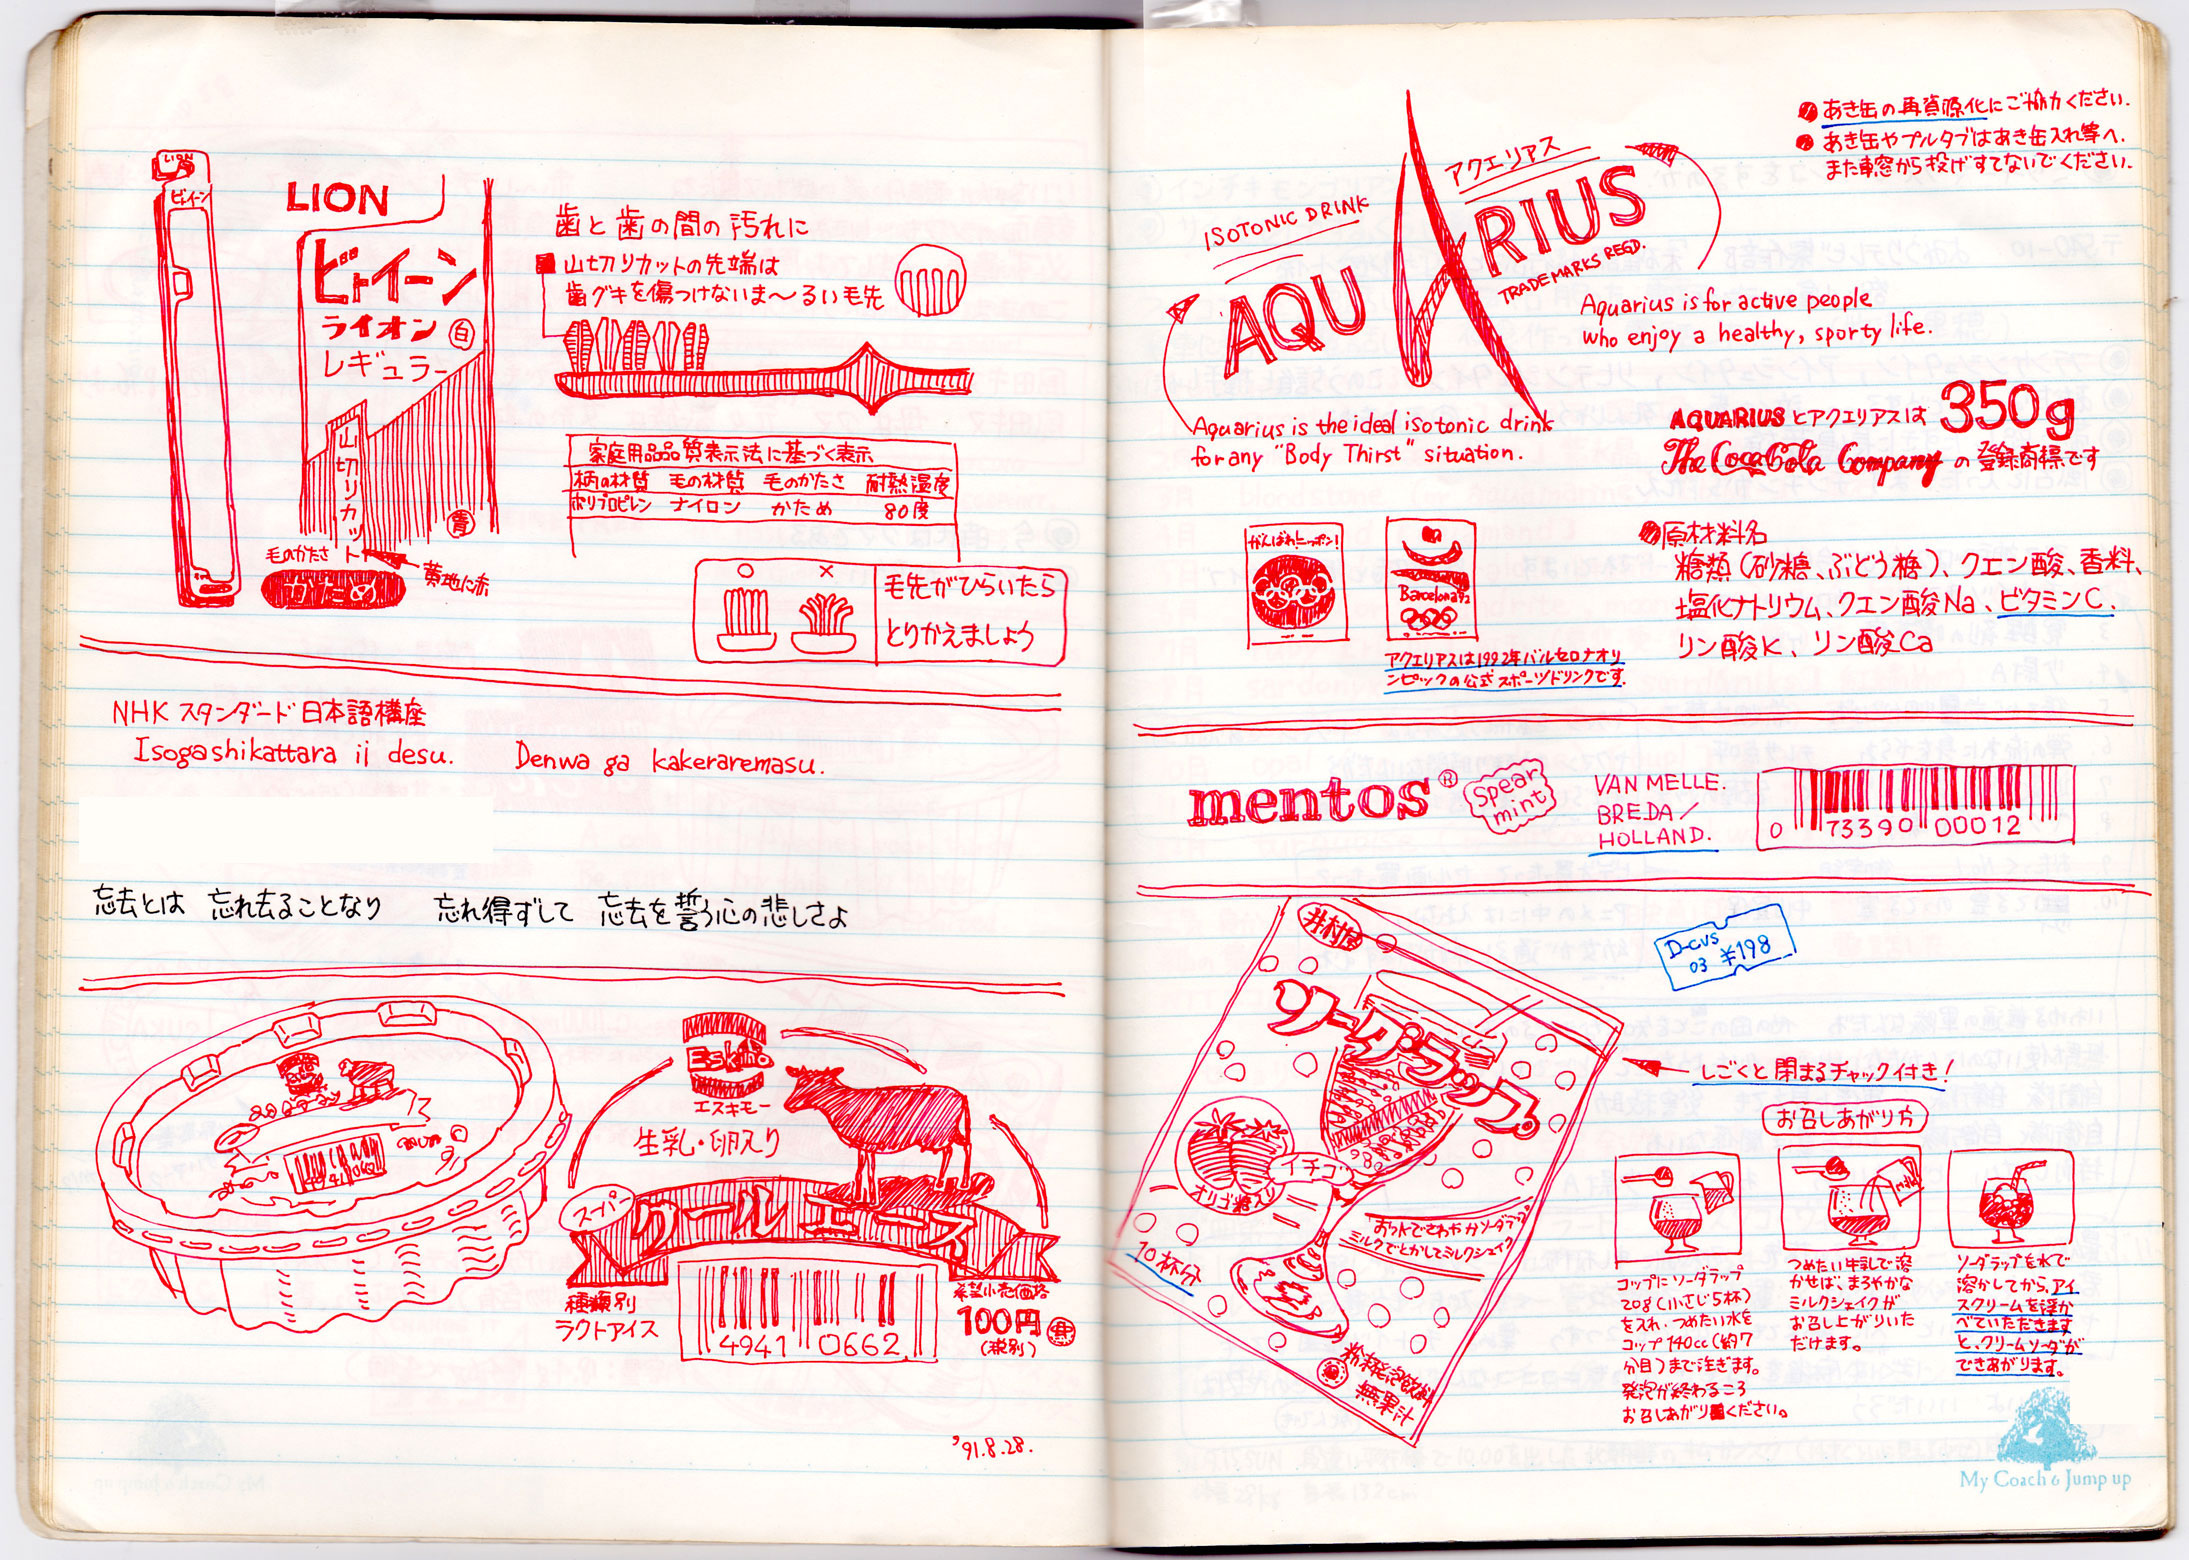 LION
ビトイーン
LION
ビトイーン
ライオン
白
レギュラー
山切りカット
青
毛のかたさ
かため
黄地に赤
歯と歯の間の汚れに
山切りカットの先端は
歯グキを傷つけないま〜るい毛先
家庭用品品質表示法に基づく表示
柄の材質 毛の材質 毛のかたさ 耐熱温度
ポリプロピレン ナイロン かため 80度
○ ×
毛先がひらいたら
とりかえましょう
NHK スタンダード日本語講座
Isogashikattara ii desu. Denwa ga kakeraremasu.
忘去とは 忘れ去ることなり 忘れ得ずして 忘去を誓う心の悲しさよ
Eskimo
エスキモー
生乳・卵入り
スーパー
クールエース
種類別
ラクトアイス
4941 0662
希望小売価格
100円
(税別)
'91.8.28.
● あき缶の再資源化にご協力ください.
● あき缶やプルタブはあき缶入れ等へ.
また車窓から投げすてないでください.
アクエリアス
ISOTONIC DRINK
AQUARIUS
TRADE MARKS REGD.
Aquarius is for active people
who enjoy a healthy, sporty life.
Aquarius is the ideal isotonic drink
for any "Body Thirst" situation.
350g
AQUARIUSとアクエリアスは
The Coca-Cola Company の登録商標です
がんばれ!ニッポン!
Barcelona'92
アクエリアスは1992年バルセロナオリ
ンピックの公式スポーツドリンクです.
●原材料名
糖類(砂糖、ぶどう糖)、クエン酸、香料、
塩化ナトリウム、クエン酸Na、ビタミンC、
リン酸K、リン酸Ca
mentos®
Spear
mint
VAN MELLE.
BREDA/
HOLLAND.
0 73390 00012
D-CVS
03 ¥198
井村屋
ソーダラップ
イチゴ
オリゴ糖入り
お水でさわやかソーダラップ
ミルクでとかしてミルクシェイク
10杯分
粉末発泡飲料
無果汁
しごくと閉まるチャック付き!
お召しあがり方
コップにソーダラップ
20g(小さじ5杯)
を入れ・つめたい水を
コップ140cc(約7
分目)まで注ぎます。
発泡が終わるころ
お召しあがりください。
milk
つめたい牛乳で溶
かせば、まろやかな
ミルクシェイクが
お召し上がりいた
だけます。
ソーダラップを水で
溶かしてから、アイ
スクリームを浮か
べていただきます
と、クリームソーダが
できあがります。
My Coach & Jump up